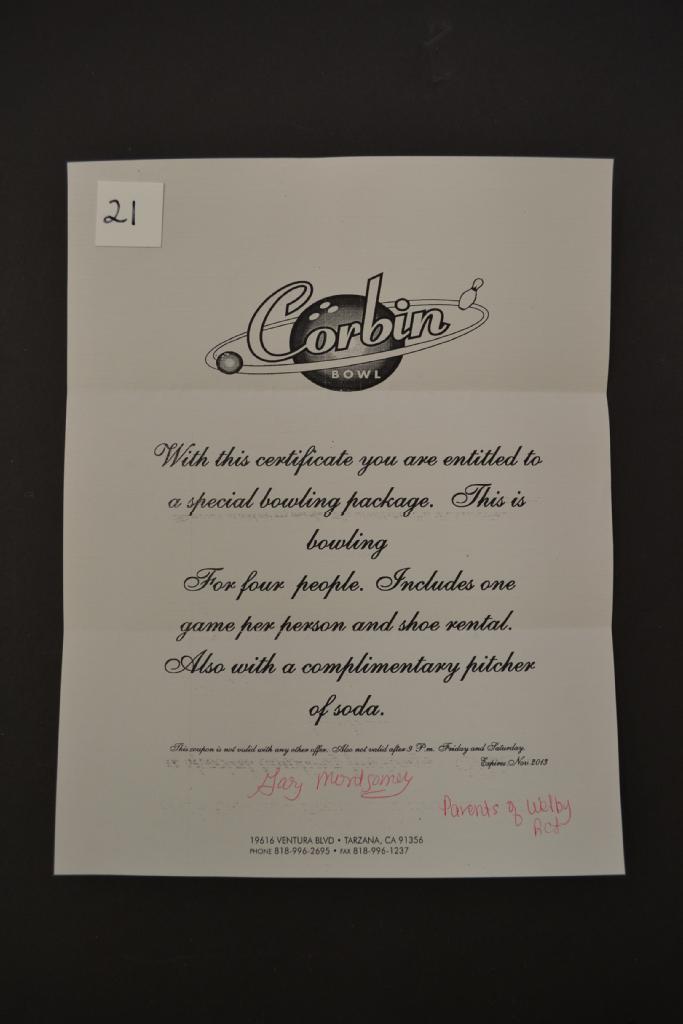 21
Corbin
BOWL
With this certificate you are entitled to
a special bowling package. This is
bowling
For four people. Includes one
game per person and shoe rental.
Also with a complimentary pitcher
of soda.
This coupon is not valid with any other offer. Also not valid after 9 P.m. Friday and Saturday.
Expires Nov 2013
Gary Montgomey
Parents of Welby
19616 VENTURA BLVD • TARZANA, CA 91356
PHONE 818-996-2695 • FAX 818-996-1237